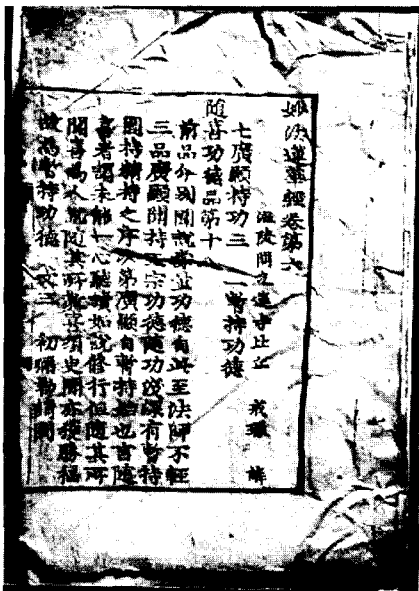 妙法蓮華經卷第六
溫陵開元蓮寺比丘 戒環 解
七廣顯持功三 一暫持功德
隨喜功德品第十
前品分別聞說 功德自此至法師不輕
三品廣顯聞持 宗功德隨功淺深有暫持
圓持精持之序 次第廣顯自暫持始也言隨
喜者謂未能一心聽讀如說修行但隨其所
聞喜爲人說隨其所 須臾聞亦獲勝福
故爲暫持功德 文三 初彌勒請問